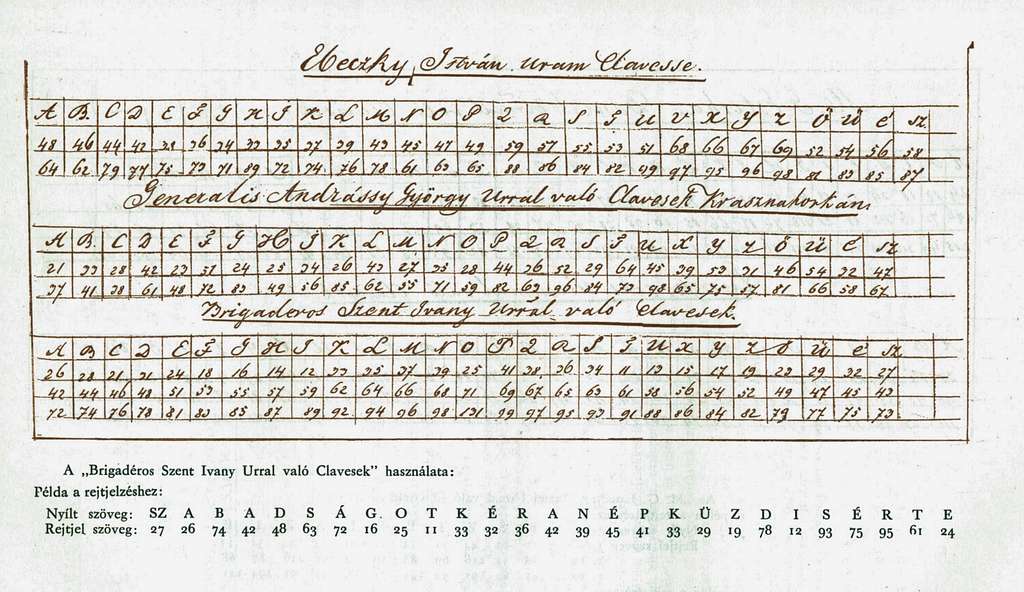 István uram Clavesse.
A B. C D E F G H I K L M N O P Q R S T U V X Y Z Ö Ü É SZ.
48 46 44 42 38 36 34 33 35 37 39 43 45 47 49 59 57 55 53 51 68 66 67 69 52 54 56 58
64 62 79 77 75 73 71 89 72 74 76 78 61 63 65 88 86 84 82 99 97 95 96 98 81 83 85 87
Generalis Andrássy György Urral való Clavesek Krasznahorkán.
A B. C D E F G H I K L M N O P Q R S T U X Y Z Ö Ü É SZ
21 33 28 42 23 51 24 25 34 26 43 27 35 28 44 36 52 29 64 45 39 53 31 46 54 32 47
37 41 38 61 48 72 83 49 56 85 62 55 71 59 82 63 96 84 73 98 65 75 57 81 66 58 67
Brigaderos Szent Ivany Urral való Clavesek.
A B C D E F G H I K L M N O P Q R S T U X Y Z Ö Ü É SZ
26 28 21 31 24 18 16 14 12 33 35 37 39 25 41 38 36 34 11 13 15 17 19 23 29 32 27
42 44 46 48 51 53 55 57 59 62 64 66 68 71 69 67 65 63 61 58 56 54 52 49 47 45 43
72 74 76 78 81 83 85 87 89 92 94 96 98 131 99 97 95 93 91 88 86 84 82 79 77 75 73
A „Brigadéros Szent Ivany Urral való Clavesek" használata:
Példa a rejtjelzéshez:
Nyílt szöveg: SZ A B A D S Á G. O T K É R A N É P K Ü Z D I S É R T E
Rejtjel szöveg: 27 26 74 42 48 63 72 16 25 11 33 32 36 42 39 45 41 33 29 19 78 12 93 75 95 61 24